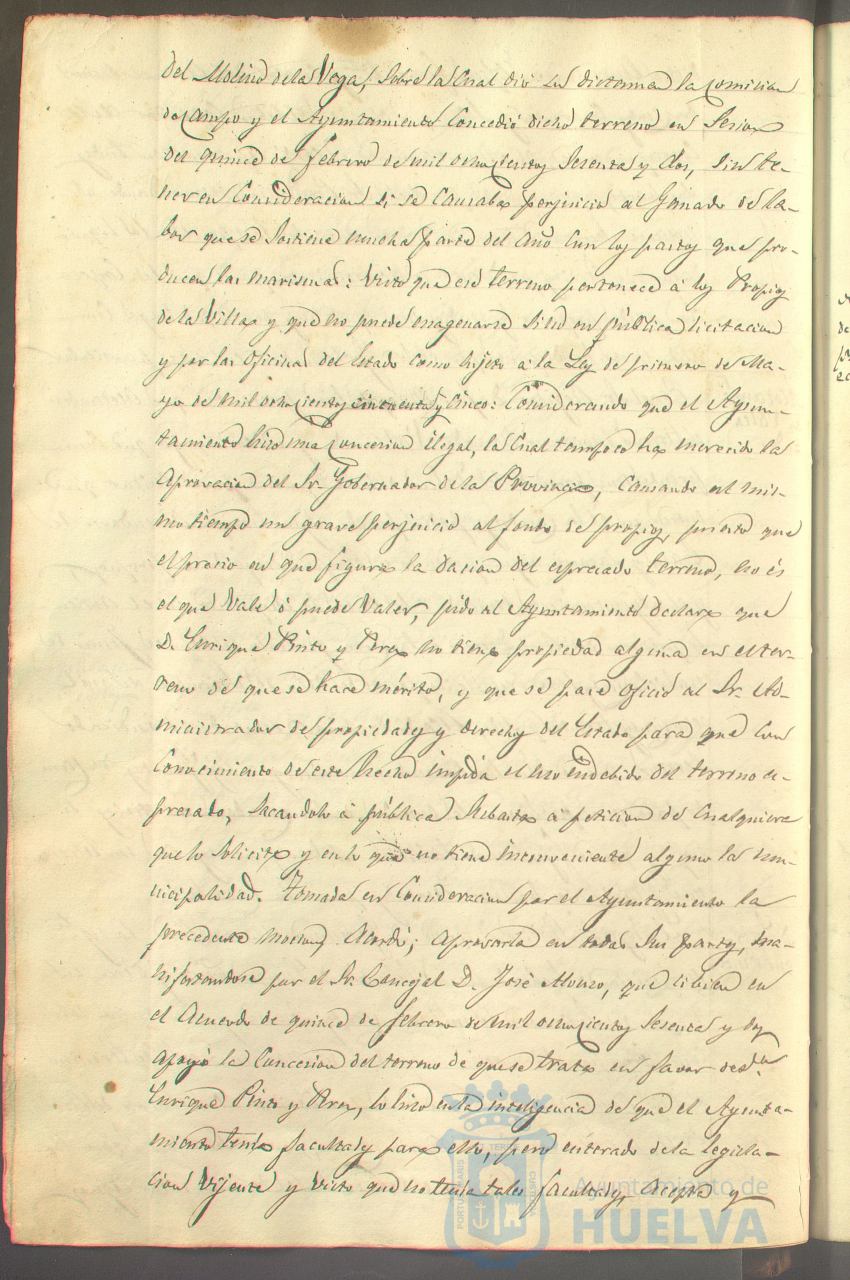 del Molino de la Vega, sobre la cual dió su dictamen la comision
de campo y el Ayuntamiento concedió dicho terreno en sesion
del quince de febrero de mil ochocientos sesenta y dos, sin te-
ner en consideracion si se causaba perjuicio al ganado de la-
bor que se sostiene mucha parte del año con los pastos que pro-
ducen las marismas: Visto que ese terreno pertenece á los Propios
de la Villa y que no puede enagenarse sino en pública licitacion
y por las oficinas del Estado como sujeto á la Ley de primero de Ma-
yo de mil ochocientos cincuenta y cinco: Considerando que el Ayun-
tamiento hizo una concesion ilegal, la cual tampoco ha merecido la
aprovacion del Sr. Gobernador de la Provincia, causando al mis-
mo tiempo un grave perjuicio al fondo de propios, puesto que
el precio en que figura la dacion del espresado terreno, no és
el que vale ó puede valer, pido al Ayuntamiento declare que
D. Enrique Pinto y Perez no tiene propiedad alguna en el ter-
reno de que se hace mérito, y que se pase oficio al Sr. Ad-
ministrador de propiedades y derechos del Estado para que con
conocimiento de este hecho impida el uso indebido del terreno es-
presado, sacandolo á pública subasta á peticion de cualquiera
que lo solicite y en lo que no tiene inconveniente alguno la mu-
nicipalidad. Tomada en consideracion por el Ayuntamiento la
precedente mocion, Acordó; aprovarla en todas sus partes, ma-
nifestandose por el Sr. Concejal D. José Alonso, que si bien en
el Acuerdo de quince de febrero de mil ochocientos sesenta y dos
apoyó la concesion del terreno de que se trata en favor de Dn.
Enrique Pinto y Perez, lo hizo en la inteligencia de que el Ayunta-
miento tenia facultades para ello, pero enterado de la legisla-
cion vijente y visto que no tenia tales facultades, acepta y
Ayuntamiento de
HUELVA